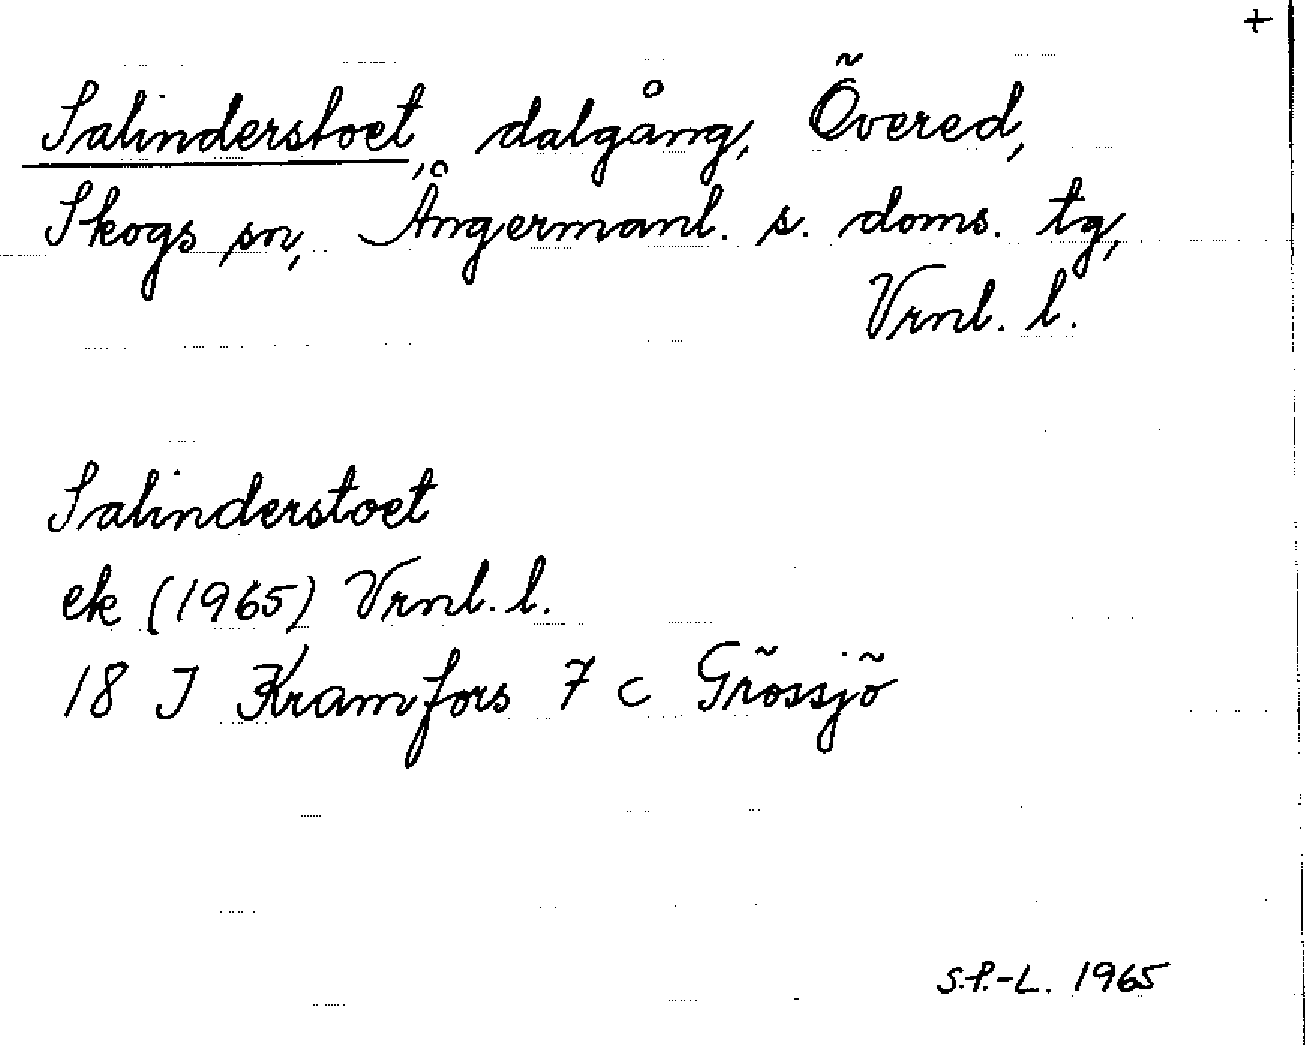 +
Salinderstoet, dalgång, Övered,
Skogs sn, Ångermanl. s. doms. tg,
Vrnl. l.
Salinderstoet
ek (1965) Vrnl. l.
18 I Kramfors 7 c Grössjö
S.P.-L. 1965